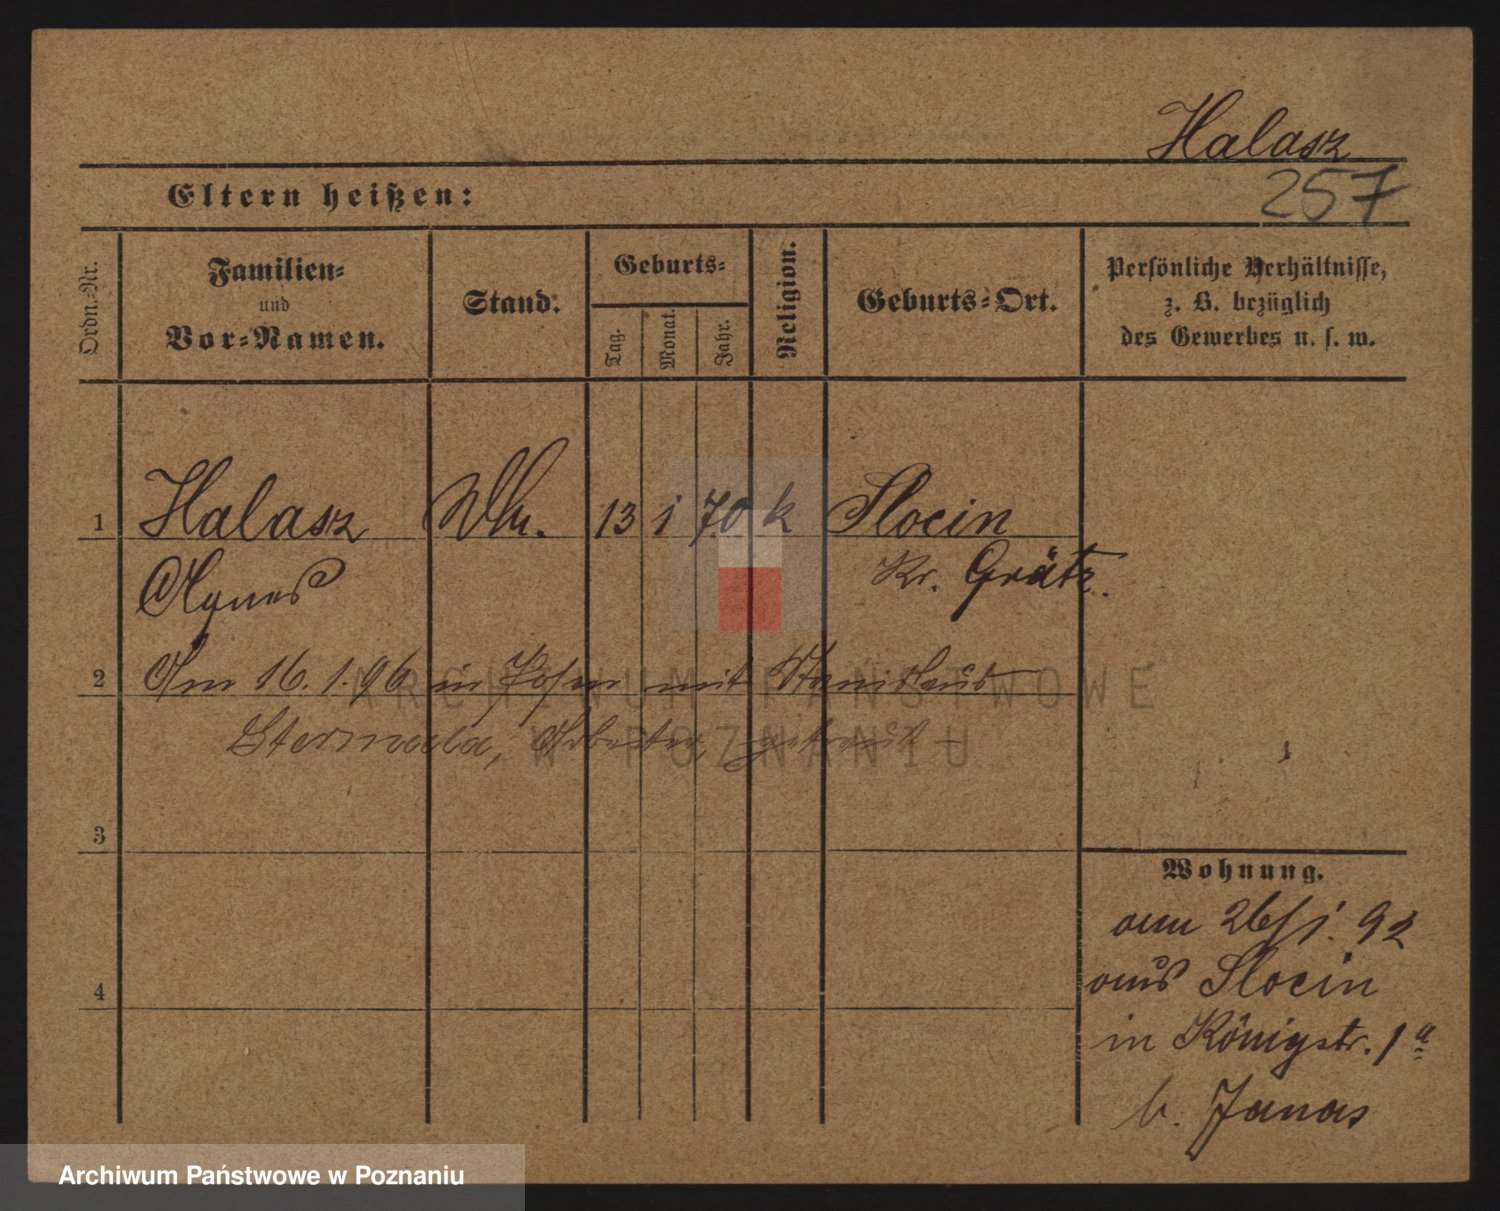 Halasz
Eltern heißen:
257
Ordn.-Nr.
Familien-
und
Vor-Namen.
Stand.
Geburts-
Tag.
Monat.
Jahr.
Religion.
Geburts-Ort.
Persönliche Verhältnisse,
z. B. bezüglich
des Gewerbes u. s. w.
1 Halasz 13 1 70 k Slocin
Agnes Kr. Grätz.
2 Am 16.1.96 in Posen mit Stanislaus
Arbeiter, getraut
ARCHIWUM PAŃSTWOWE
W POZNANIU
3
Wohnung.
am 26/1. 92
aus Slocin
4
in Königstr. 1a
b. Janas
Archiwum Państwowe w Poznaniu